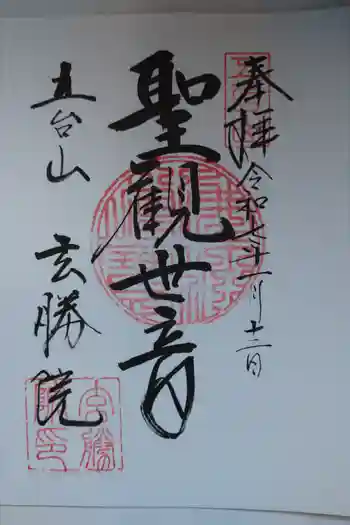 奉拝
令和七年一月十二日
聖観世音
五台山
玄勝院
玄勝院印